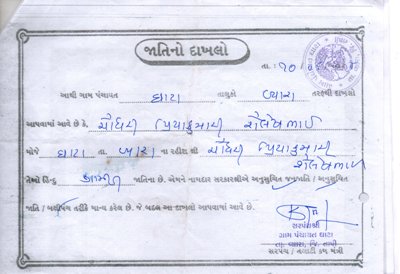 જાતિનો દાખલો
તા. ૧૦
આથી ગામ પંચાયત ઘાટા તાલુકો વ્યારા તરફથી દાખલો
આપવામાં આવે છે કે, ચૌધરી પ્રિયાકુમારી શૈલેષભાઈ
મોજે ઘાટા તા. વ્યારા ના રહીશ શ્રી ચૌધરી પ્રિયાકુમારી
શૈલેષભાઈ
તેઓ હિન્દુ જાતિના છે. એમને નામદાર સરકારશ્રીએ અનુસૂચિત જનજાતિ / અનુસૂચિત
જાતિ / બક્ષીપંચ તરીકે માન્ય કરેલ છે. જે બદલ આ દાખલો આપવામાં આવે છે.
સરપંચશ્રી
ગ્રામ પંચાયત ઘાટા
તા. વ્યારા, જિ. તાપી
સરપંચ / તલાટી કમ મંત્રી